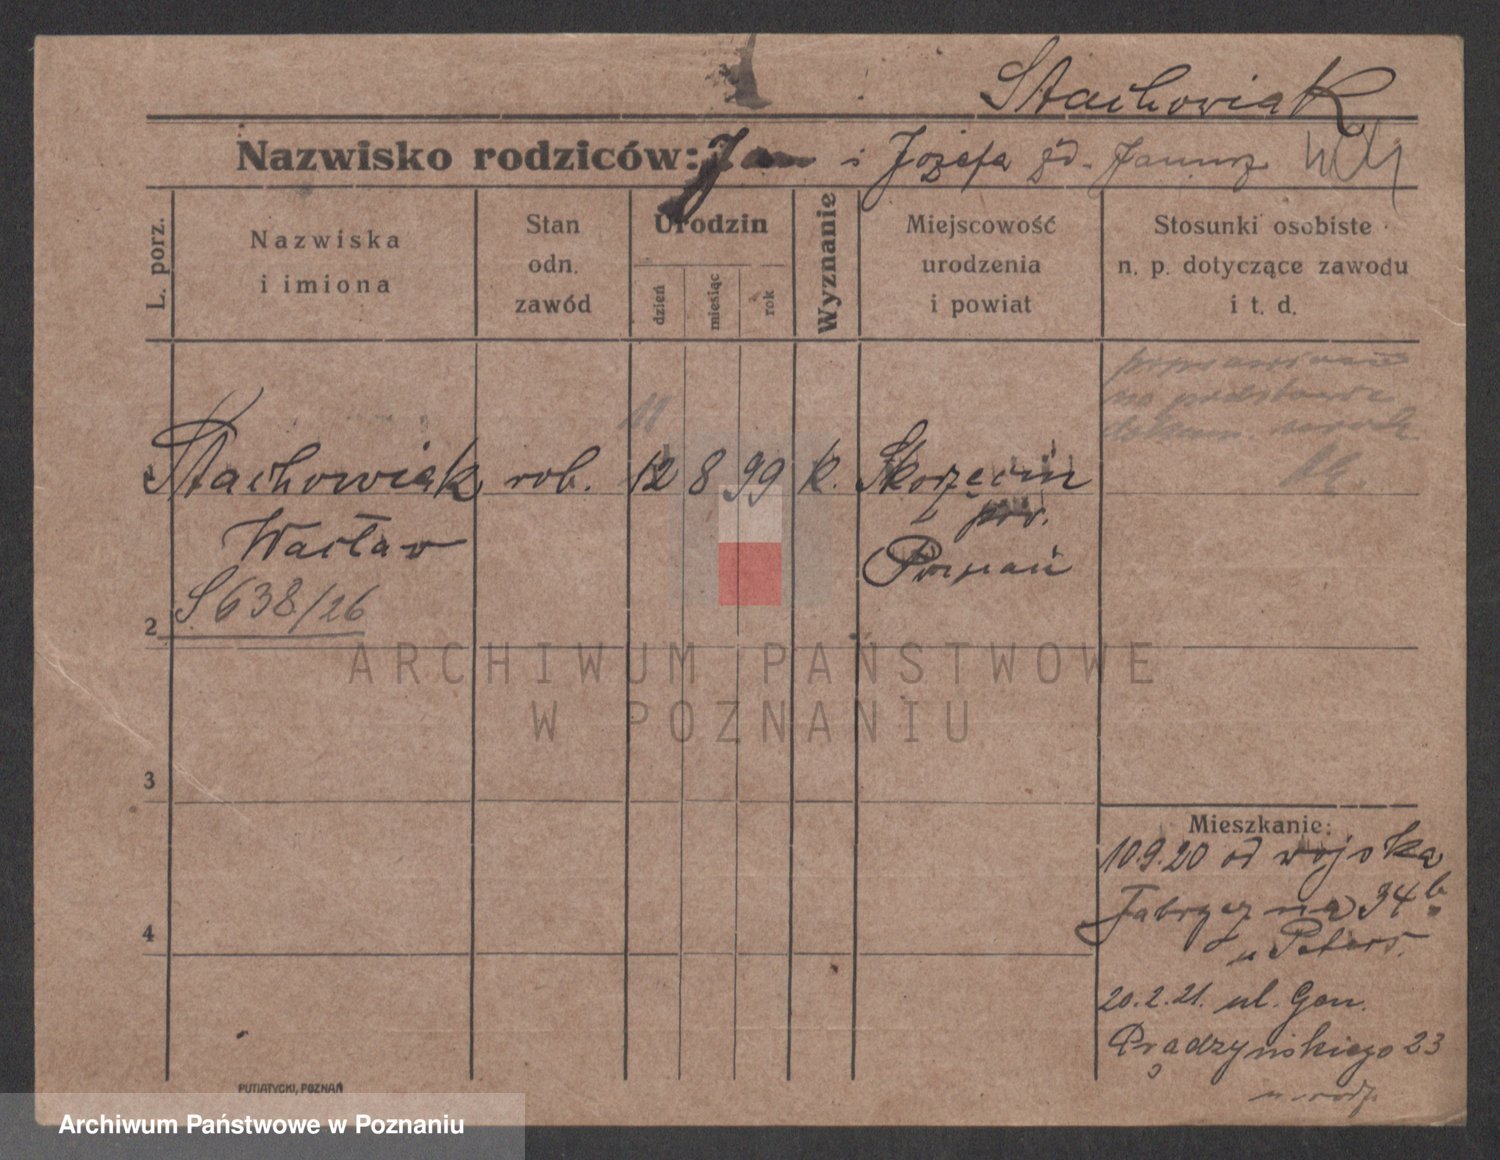 Stachowiak
Nazwisko rodziców: Jan i Józefa
L. porz.
Nazwiska
i imiona
Stan
odn.
zawód
Urodzin
dzień
miesiąc
rok
Wyznanie
Miejscowość
urodzenia
i powiat
Stosunki osobiste
n. p. dotyczące zawodu
i t. d.
na podstawie
1 Stachowiak rob. 12 8 99 k. Skorzęcin
Wacław
pow.
Poznań
S 638/26
2
3
4
Mieszkanie:
10.9.20 od wojska
Fabryczna 34 b
u Peters.
20.2.21. ul. Gen.
Prądzyńskiego 23
u rodz.
PUTIATYCKI, POZNAŃ
ARCHIWUM PAŃSTWOWE
W POZNANIU
Archiwum Państwowe w Poznaniu